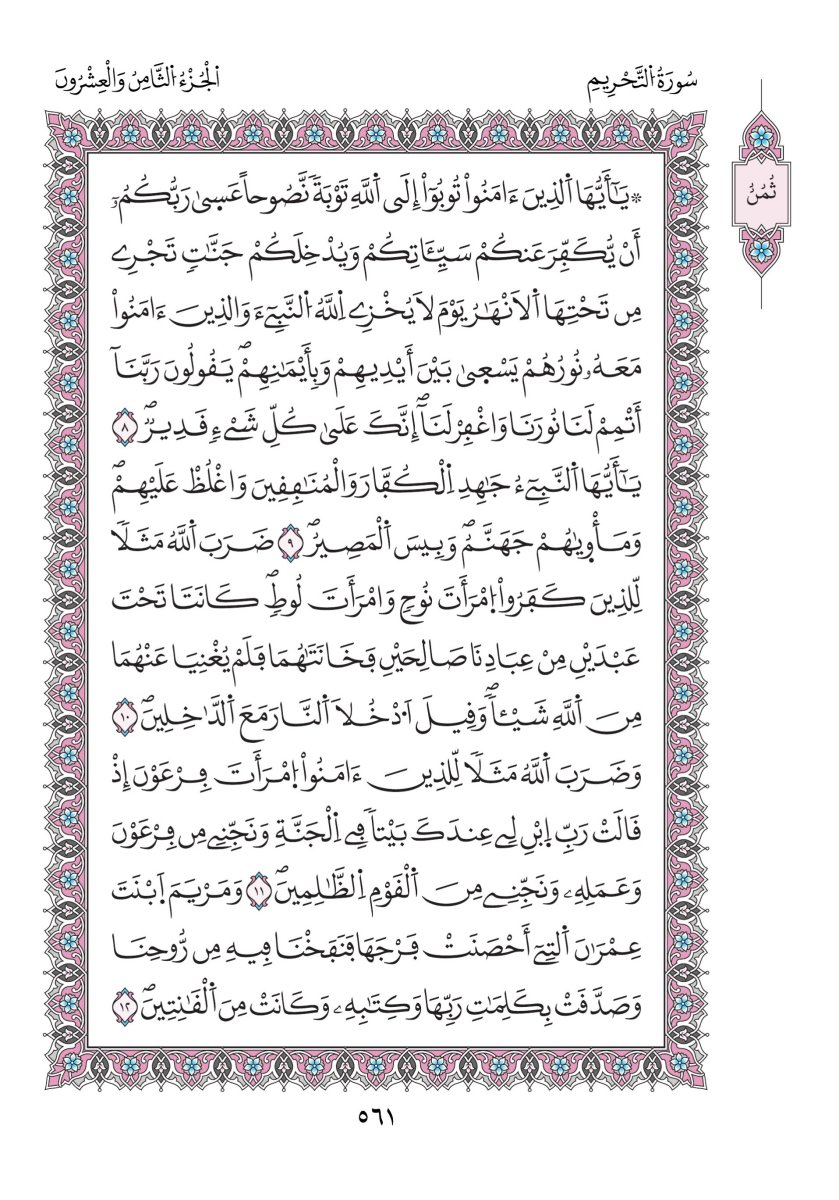 سُورَةُ التَّحْرِيمِ
الْجُزْءُ الثَّامِنُ وَالْعِشْرُونَ
ثُمُنُ
۞ يَٰٓأَيُّهَا اَ۬لذِينَ ءَامَنُواْ تُوبُوٓاْ إِلَى اَ۬للَّهِ تَوْبَةٗ نَّصُوحاً عَس۪ىٰ رَبُّكُمُۥٓ
أَنْ يُّكَفِّرَ عَنكُمْ سَيِّـَٔاتِكُمْ وَيُدْخِلَكُمْ جَنَّٰتٖ تَجْرِے
مِن تَحْتِهَا اَ۬لَانْهَٰرُ يَوْمَ لَا يُخْزِے اِ۬للَّهُ اُ۬لنَّبِےٓءَ وَالذِينَ ءَامَنُواْ
مَعَهُۥ نُورُهُمْ يَسْع۪ىٰ بَيْنَ أَيْدِيهِمْ وَبِأَيْمَٰنِهِمْۖ يَقُولُونَ رَبَّنَآ
أَتْمِمْ لَنَا نُورَنَا وَاغْفِرْ لَنَآۖ إِنَّكَ عَلَىٰ كُلِّ شَےْءٖ قَدِيرٞۖ ٨
يَٰٓأَيُّهَا اَ۬لنَّبِےٓءُ جَٰهِدِ اِ۬لْكُفَّارَ وَالْمُنَٰفِقِينَ وَاغْلُظْ عَلَيْهِمْۖ
وَمَأْو۪يٰهُمْ جَهَنَّمُۖ وَبِيسَ اَ۬لْمَصِيرُۖ ٩ ضَرَبَ اَ۬للَّهُ مَثَلاٗ
لِّلذِينَ كَفَرُواْ اُ۪مْرَأَتَ نُوحٖ وَامْرَأَتَ لُوطٖۖ كَانَتَا تَحْتَ
عَبْدَيْنِ مِنْ عِبَادِنَا صَٰلِحَيْنِ فَخَانَتَٰهُمَا فَلَمْ يُغْنِيَا عَنْهُمَا
مِنَ اَ۬للَّهِ شَيْـٔاٗۖ وَقِيلَ اَ۟دْخُلَا اَ۬لنَّارَ مَعَ اَ۬لدَّٰخِلِينَۖ ١٠
وَضَرَبَ اَ۬للَّهُ مَثَلاٗ لِّلذِينَ ءَامَنُواْ اُ۪مْرَأَتَ فِرْعَوْنَ إِذْ
قَالَتْ رَبِّ اِ۪بْنِ لِے عِندَكَ بَيْتاٗ فِے اِ۬لْجَنَّةِ وَنَجِّنِے مِن فِرْعَوْنَ
وَعَمَلِهِۦ وَنَجِّنِے مِنَ اَ۬لْقَوْمِ اِ۬لظَّٰلِمِينَۖ ١١ وَمَرْيَمَ اَ۪بْنَتَ
عِمْرَٰنَ اَ۬لتِےٓ أَحْصَنَتْ فَرْجَهَا فَنَفَخْنَا فِيهِ مِن رُّوحِنَا
وَصَدَّقَتْ بِكَلِمَٰتِ رَبِّهَا وَكِتَٰبِهِۦ وَكَانَتْ مِنَ اَ۬لْقَٰنِتِينَۖ ١٢
٥٦١